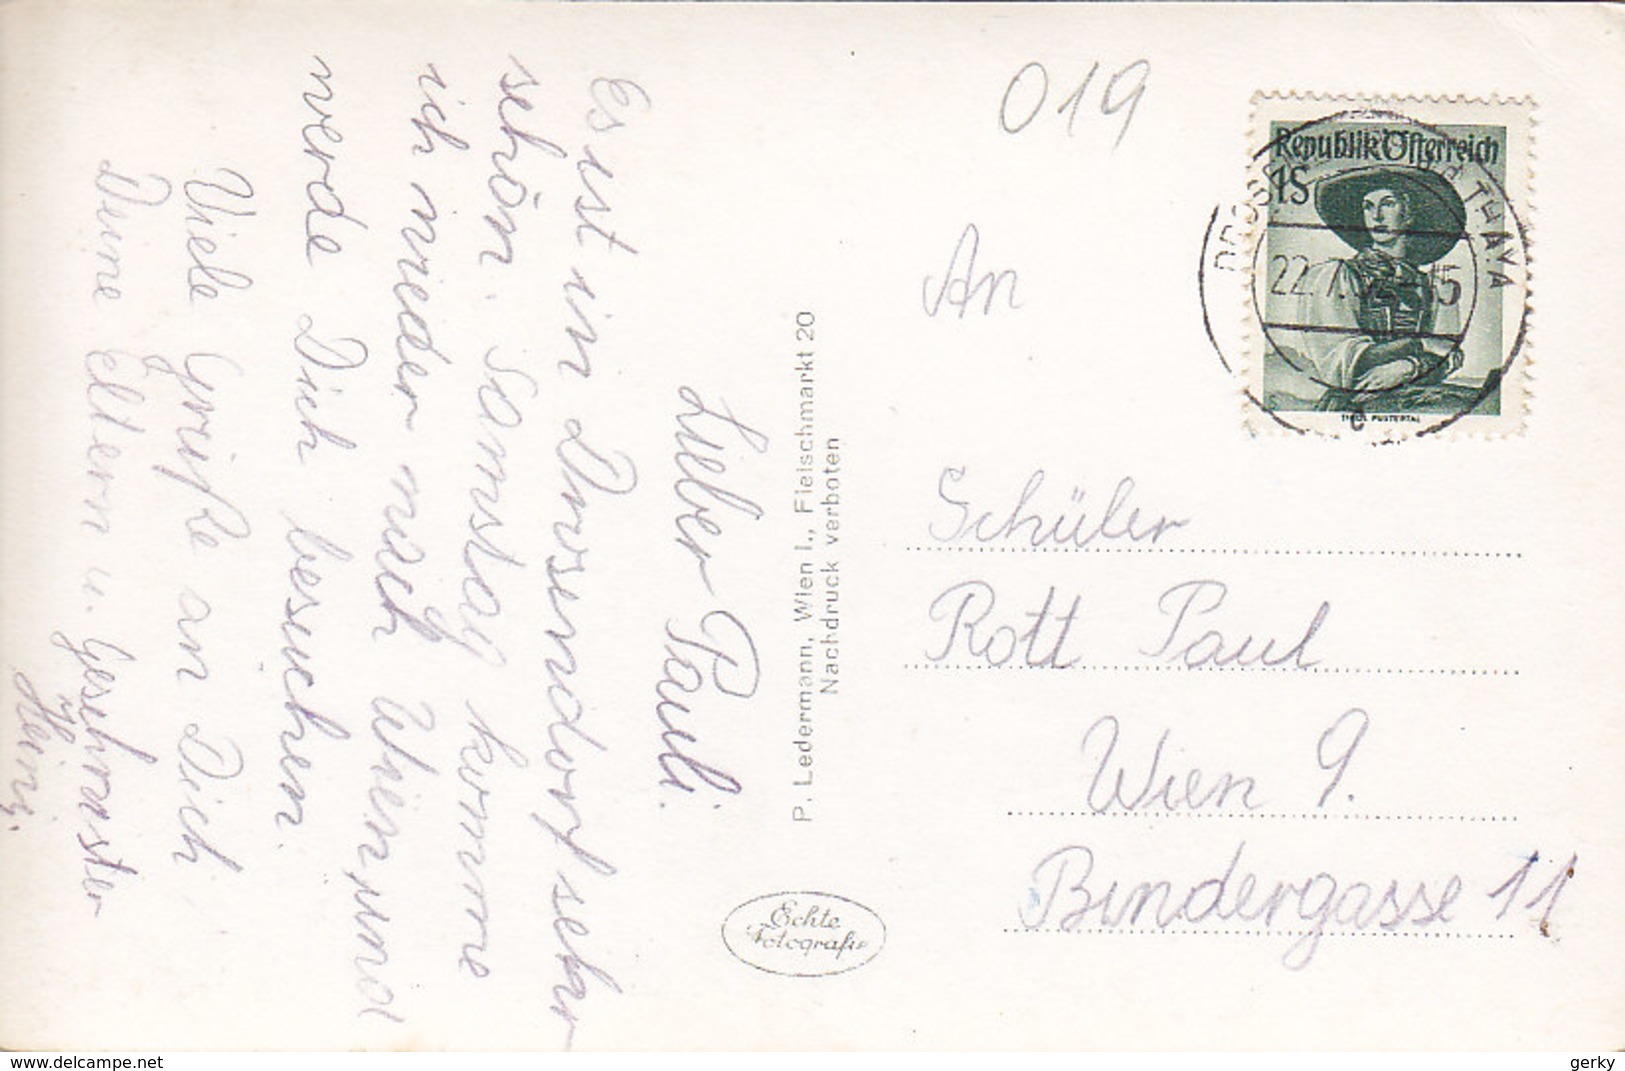 Lieber Pauli.
Es ist in Drosendorf sehr
schön. Samstag komme
ich wieder nach Wien und
werde Dich besuchen.
Viele Grüße an Dich
Deine Eltern u. Geschwister
Heini.
P. Ledermann, Wien I., Fleischmarkt 20
Nachdruck verboten
Echte
Fotografie
019
Republik Österreich
1S
TIROL PUSTERTAL
THAYA
22. 15
c
An
Schüler
Rott Paul
Wien 9.
Bindergasse 11
www.delcampe.net
gerky